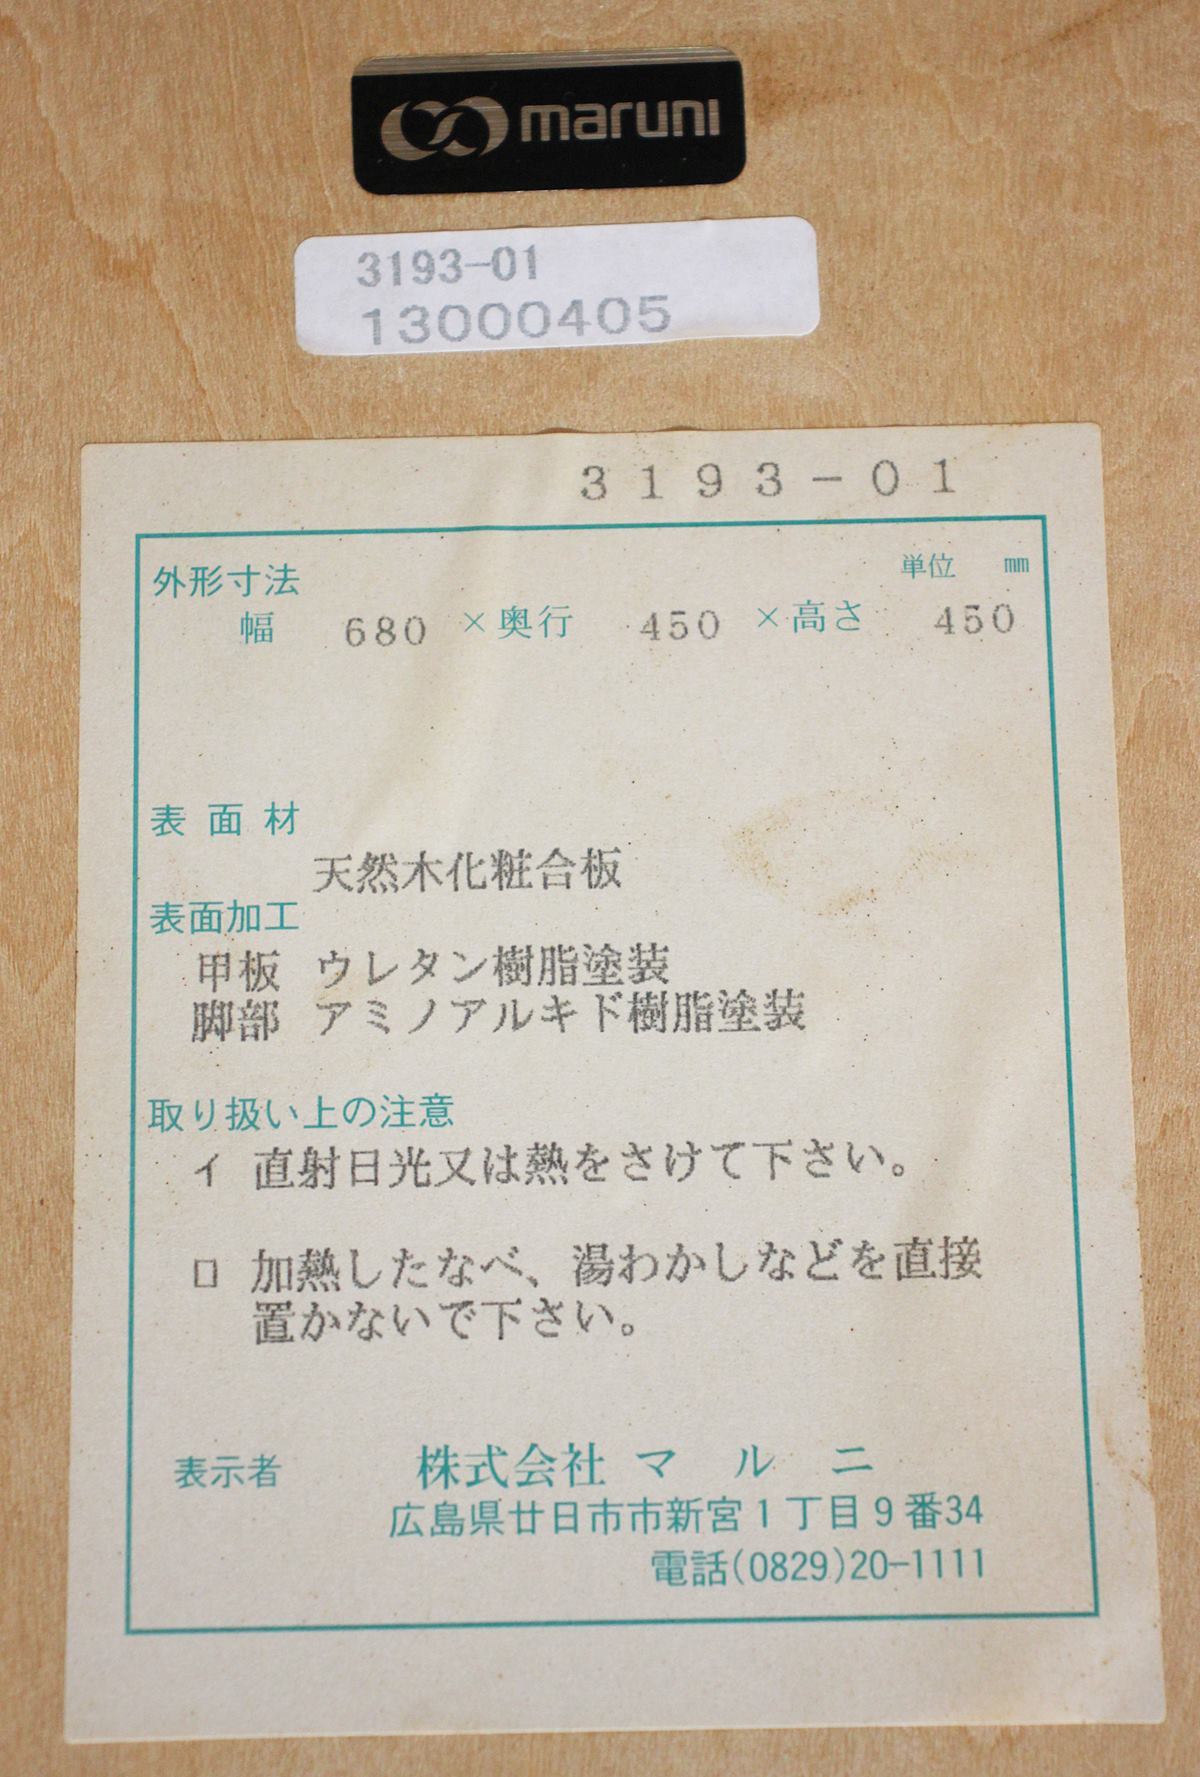 maruni
3193-01
13000405
3193-01
外形寸法 単位 ㎜
幅 680 ×奥行 450 ×高さ 450
表面材
天然木化粧合板
表面加工
甲板 ウレタン樹脂塗装
脚部 アミノアルキド樹脂塗装
取り扱い上の注意
イ 直射日光又は熱をさけて下さい。
ロ 加熱したなべ、湯わかしなどを直接
置かないで下さい。
表示者 株式会社 マルニ
広島県廿日市市新宮1丁目9番34
電話(0829)20-1111